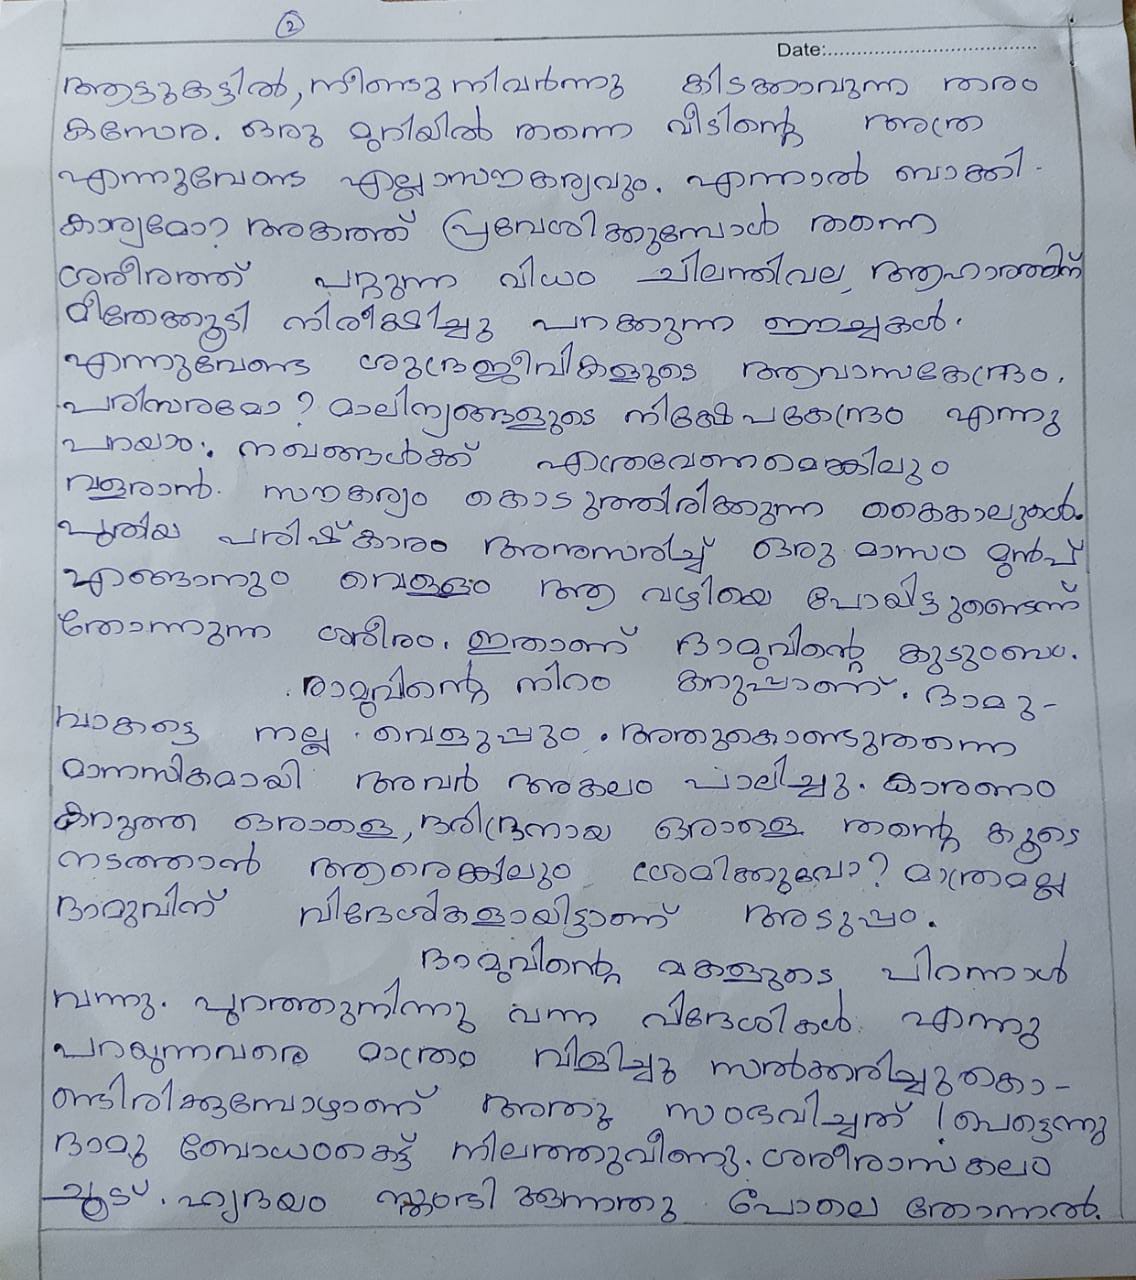 2
Date:
ആട്ടുകട്ടിൽ, നീണ്ടു നിവർന്നു കിടക്കാവുന്ന തരം
കസേര. ഒരു മുറിയിൽ തന്നെ വീടിന്റെ അത്ര
എന്നുവേണ്ട എല്ലാസൗകര്യവും. എന്നാൽ ബാക്കി-
കാര്യമോ? അകത്ത് പ്രവേശിക്കുമ്പോൾ തന്നെ
ശരീരത്ത് പറ്റുന്ന വിധം ചിലന്തിവല, ആഹാരത്തിന്
മീതേക്കൂടി നിരീക്ഷിച്ചു പറക്കുന്ന ഈച്ചകൾ.
എന്നുവേണ്ട ശുദ്രജീവികളുടെ ആവാസകേന്ദ്രം.
പരിസരമോ? മാലിന്യങ്ങളുടെ നിക്ഷേപകേന്ദ്രം എന്നു
പറയാം. നഖങ്ങൾക്ക് എത്രവേണമെങ്കിലും
വളരാൻ സൗകര്യം കൊടുത്തിരിക്കുന്ന കൈകാലുകൾ.
പുതിയ പരിഷ്കാരം അനുസരിച്ച് ഒരു മാസം മുൻപ്
എങ്ങാനും വെള്ളം ആ വഴിയെ പോയിട്ടുണ്ടെന്ന്
തോന്നുന്ന ശരീരം. ഇതാണ് ദാമുവിന്റെ കുടുംബം.
രാമുവിന്റെ നിറം കറുപ്പാണ്. ദാമു-
വാകട്ടെ നല്ല വെളുപ്പും. അതുകൊണ്ടുതന്നെ
മാനസികമായി അവർ അകലം പാലിച്ചു. കാരണം
കറുത്ത ഒരാളെ, ദരിദ്രനായ ഒരാളെ തന്റെ കൂടെ
നടത്താൻ ആരെങ്കിലും ശ്രമിക്കുവോ? മാത്രമല്ല
ദാമുവിന് വിദേശികളായിട്ടാണ് അടുപ്പം.
ദാമുവിന്റെ മകളുടെ പിറന്നാൾ
വന്നു. പുറത്തുനിന്നു വന്ന വിദേശികൾ എന്നു
പറയുന്നവരെ മാത്രം വിളിച്ചു സൽക്കരിച്ചുകൊ-
ണ്ടിരിക്കുമ്പോഴാണ് അതു സംഭവിച്ചത്! പെട്ടെന്നു
ദാമു ബോധംകെട്ട് നിലത്തുവീണു. ശരീരാസകലം
ചൂട്. ഹൃദയം പോലെ തോന്നൽ.